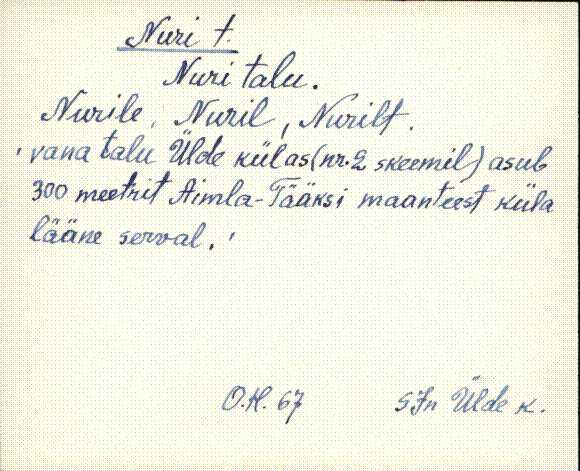 Nuri t.
Nuri talu.
Nurile, Nuril, Nurilt.
'vana talu Ülde külas (nr. 2 skeemil) asub
300 meetrit Aimla-Tääksi maanteest küla
lääne serval.'
O.H. 67 SJn Ülde k.